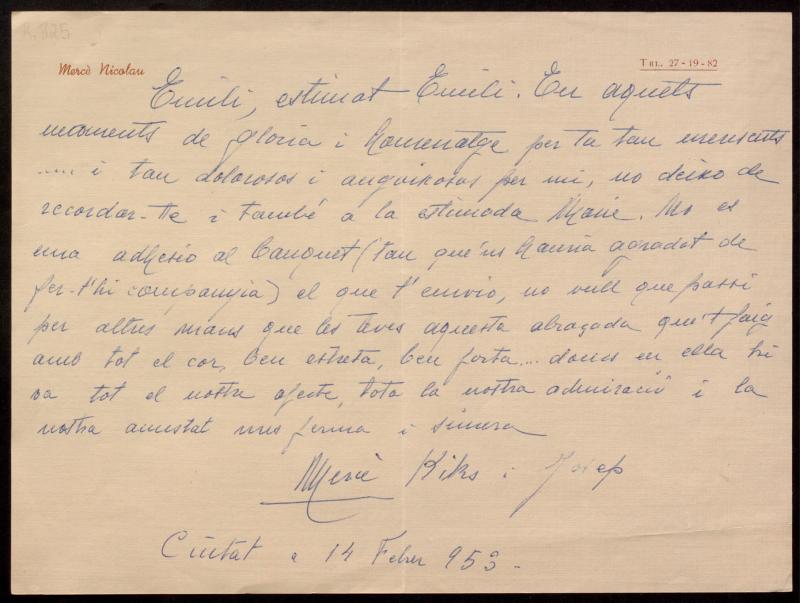 R. 825
Mercè Nicolau
TEL. 27-19-82
Emili, estimat Emili. En aquets
moments de gloria i homenatge per tu tan merescuts
..... i tan dolorosos i anguixosos per mi, no deixo de
recordar-te i també a la estimada Maria. No es
una adhesió al banquet (tan que'ns hauria agradat de
fer-t'hi companyia) el que t'envio, no vull que passi
per altres mans que les teves aquesta abraçada que't faig
amb tot el cor, ben estreta, ben forta... doncs en ella hi
va tot el nostre afecte, tota la nostra admiració i la
nostra amistat mes ferma i sincera
Mercè Kiks i Josep
Ciutat a 14 Febrer 953.-